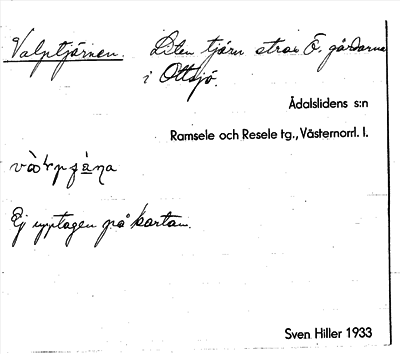 Valptjärnen. Liten tjärn strax Ö. gårdarna
i Ottsjö.
Ådalslidens s:n
Ramsele och Resele tg., Västernorrl. l.
Ej upptagen på kartan.
Sven Hiller 1933